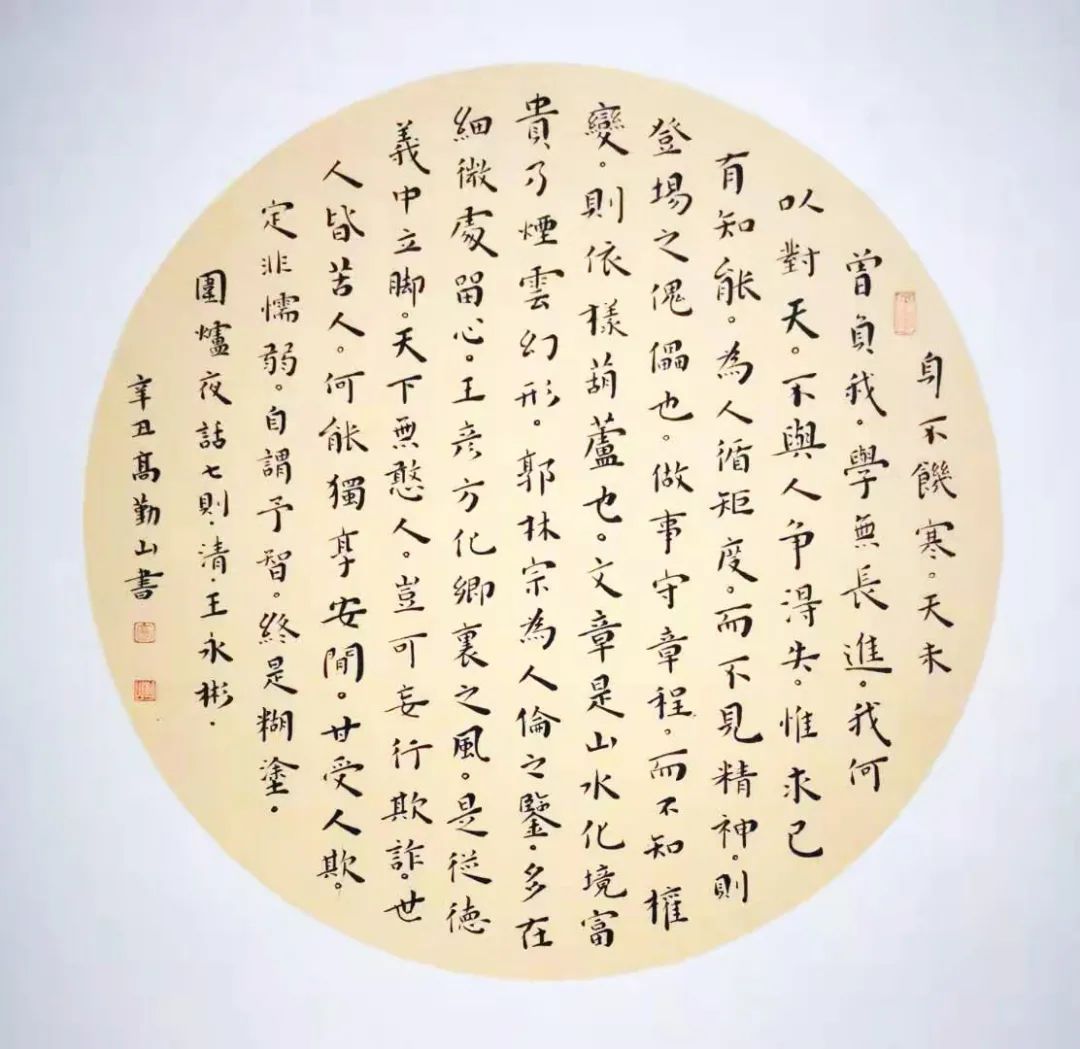 身不饑寒。天未
曾負我。學無長進。我何
以對天。不與人争淂失。惟求己
有知能。為人循矩度。而不見精神。則
登場之傀儡也。做事守章程。而不知權
變。則依樣葫蘆也。文章是山水化境富
貴乃煙雲幻形。郭林宗為人倫之鑒。多在
細微處留心。王彦方化鄉裏之風。是從德
義中立脚。天下無憨人。豈可妄行欺詐。世
人皆苦人。何能獨享安閒。甘受人欺。
定非懦弱。自謂予智。終是糊塗。
圍爐夜話七則·清·王永彬·
辛丑高勤山書